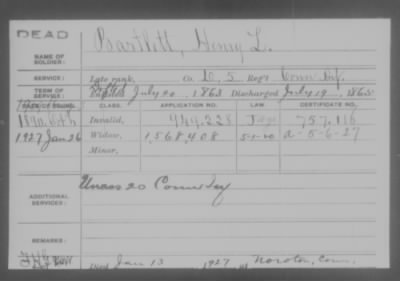 DEAD
NAME OF SOLDIER: Bartlett, Henry L.
SERVICE: Late rank, Co. 5 Reg't Conn Inf.
TERM OF SERVICE: Enlisted July 20, 1863 Discharged July 19, 1865
DATE OF FILING. CLASS. APPLICATION NO. LAW. CERTIFICATE NO.
Invalid, 757,116
1927 Jan 26 Widow, 1,568,408 a-5-6-27
Minor,
ADDITIONAL SERVICES: Unass 20 Conn Inf
REMARKS:
Died Jan 13, 1927, at Noroton, Conn.